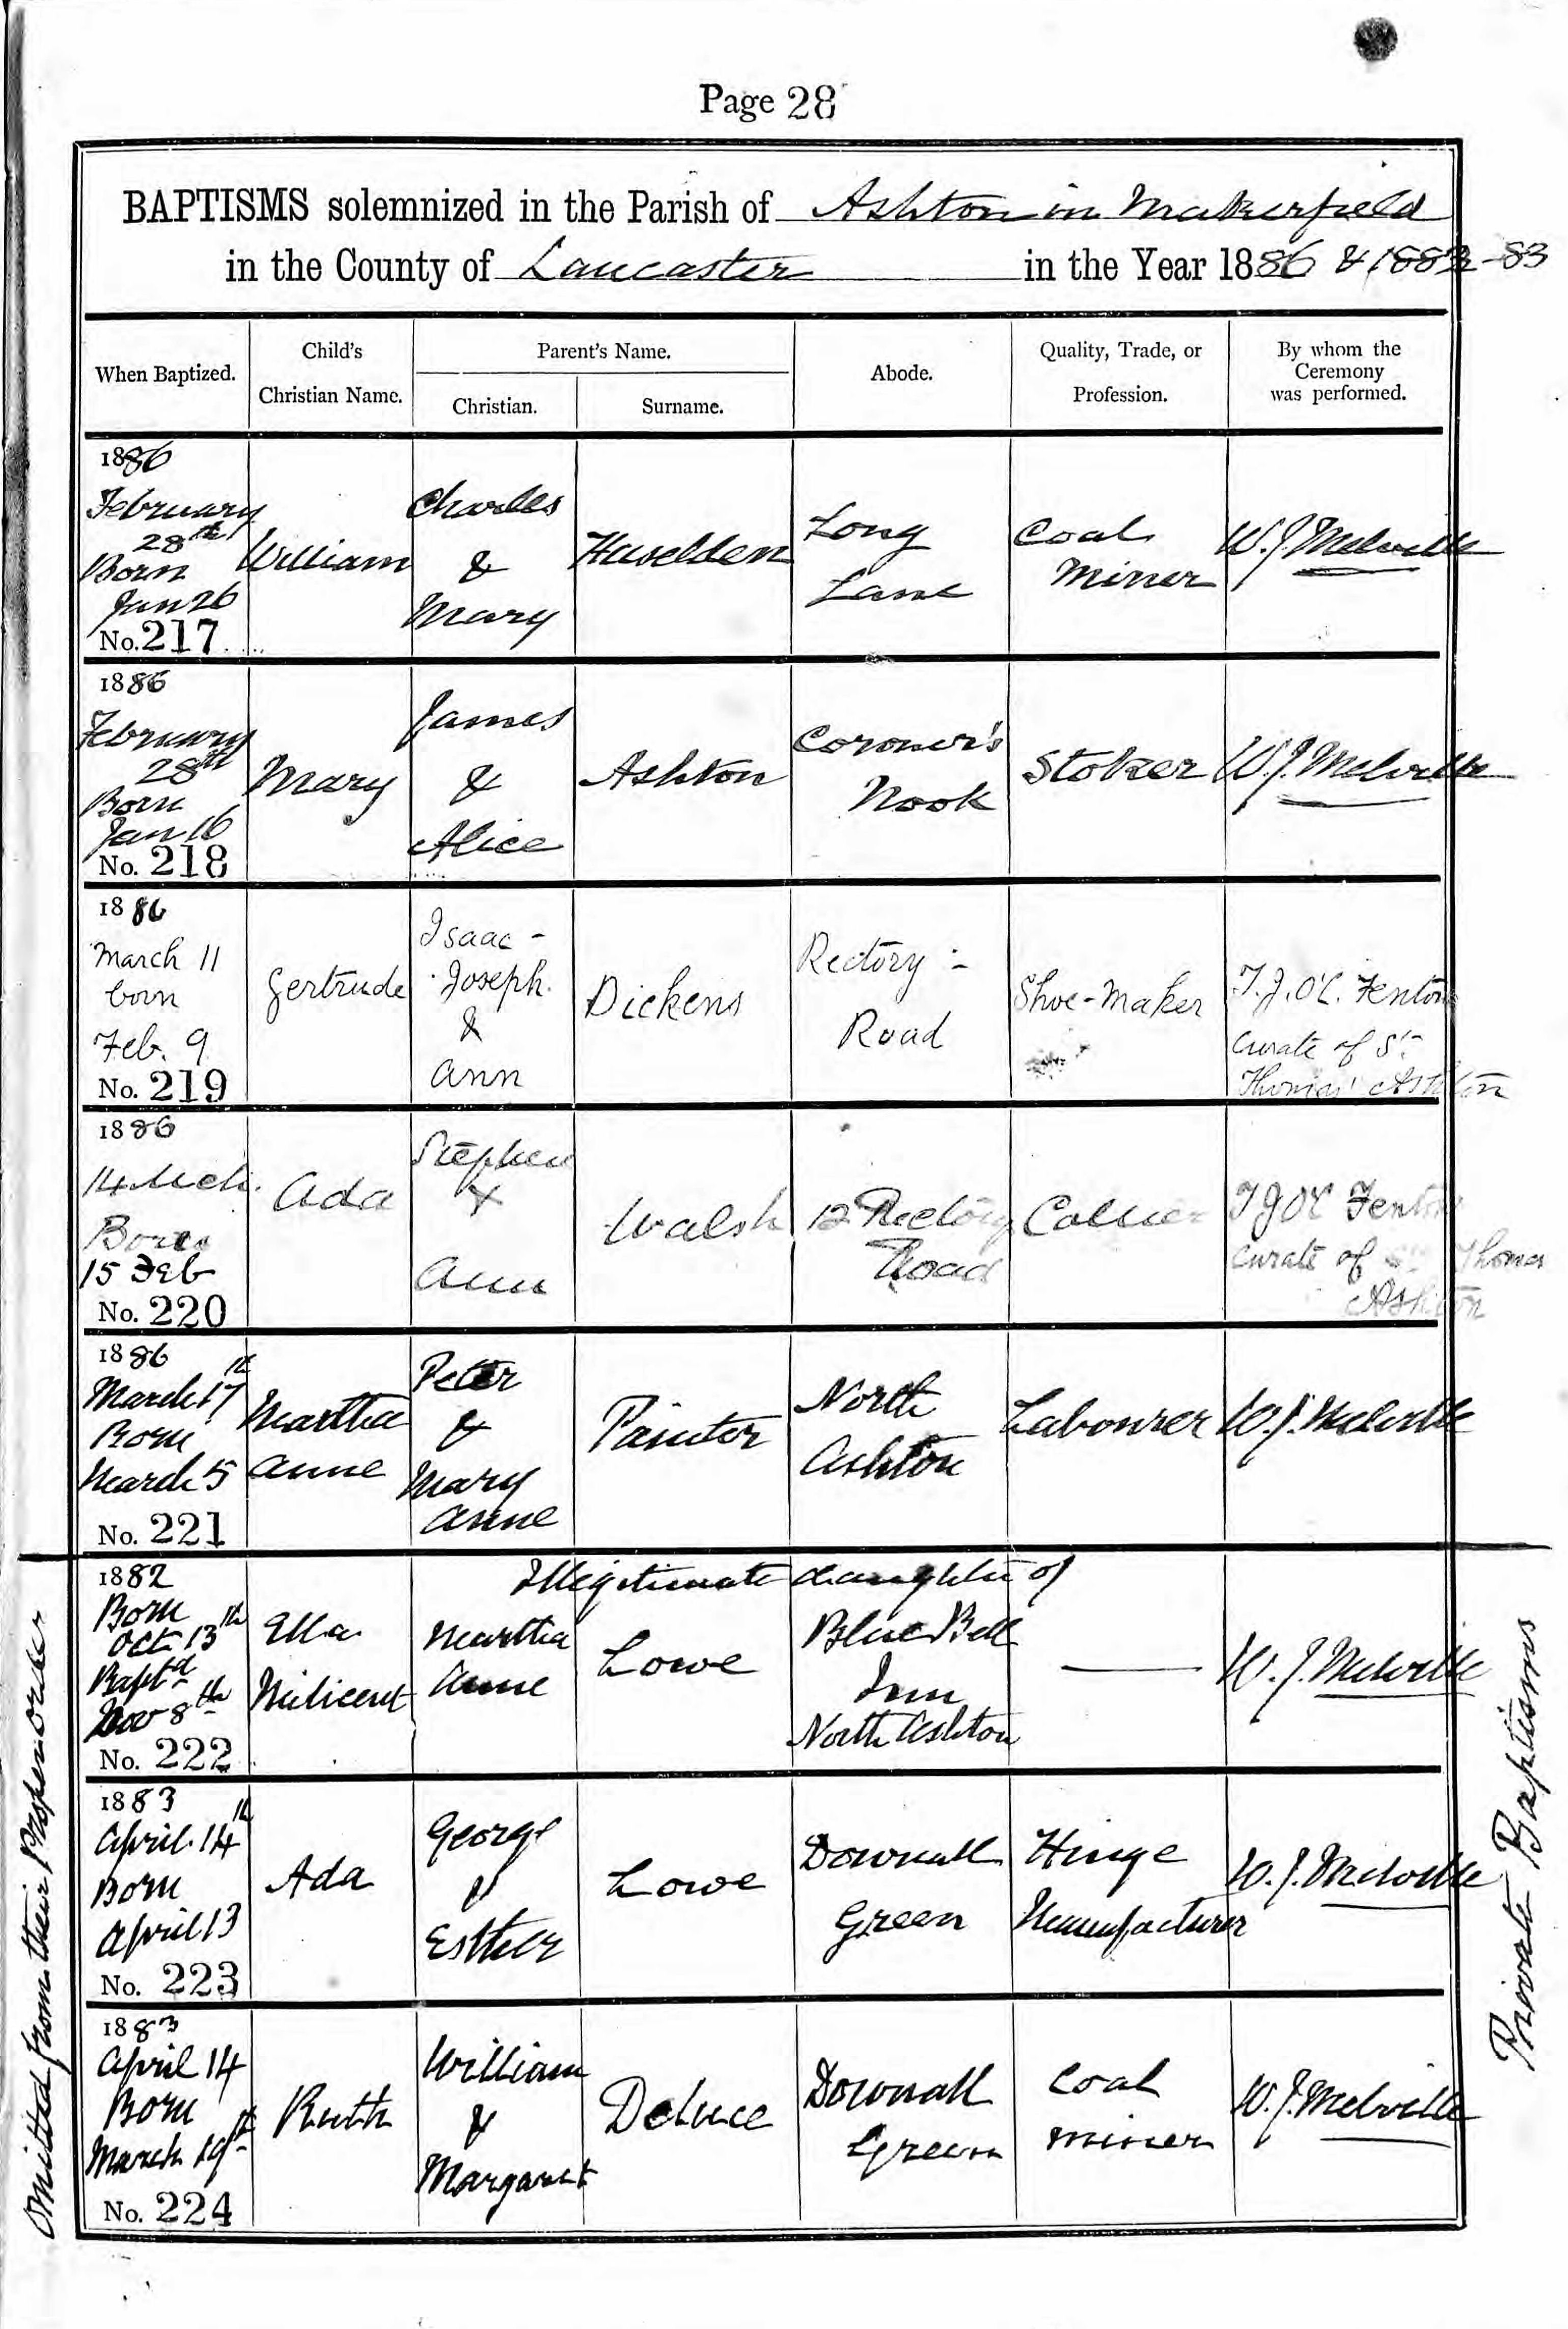 Page 28
BAPTISMS solemnized in the Parish of Ashton in Makerfield
in the County of Lancaster in the Year 1886 & 1882-83
When Baptized.
Child's
Christian Name.
Parent's Name.
Christian.
Surname.
Abode.
Quality, Trade, or
Profession.
By whom the
Ceremony
was performed.
1886
February
28th
Born
Jan 26
No. 217
William
Charles
&
Mary
Haselden
Long
Lane
Coal
Miner
W. J. Melville
1886
February
28th
Born
Jan 16
No. 218
Mary
James
&
Alice
Ashton
Coroner's
Nook
Stoker
W. J. Melville
1886
March 11
born
Feb. 9
No. 219
Gertrude
Isaac -
Joseph.
&
Ann
Dickens
Rectory -
Road
Shoe-Maker
T. J. O'C. Fenton
Curate of St
Thomas' Ashton
1886
14 Mch.
Born
15 Feb
No. 220
Ada
Stephen
&
Ann
Walsh
12 Rectory
Road
Collier
T J O'C Fenton
Curate of St Thomas
Ashton
1886
March 17th
Born
March 5
No. 221
Martha
Anne
Peter
&
Mary
Anne
Painter
North
Ashton
Labourer
W. J. Melville
1882
Born
Oct 13th
Baptd
Nov 8th
No. 222
Illegitimate daughter of
Ella
Milicent
Martha
Anne
Lowe
Blue Bell
Inn
North Ashton
W. J. Melville
1883
April 14th
Born
April 13
No. 223
Ada
George
&
Esther
Lowe
Downall
Green
Hinge
Manufacturer
W. J. Melville
1883
April 14
Born
March 19th
No. 224
Ruth
William
&
Margaret
Deluce
Downall
Green
Coal
Miner
W. J. Melville
Omitted from their proper order
Private Baptisms